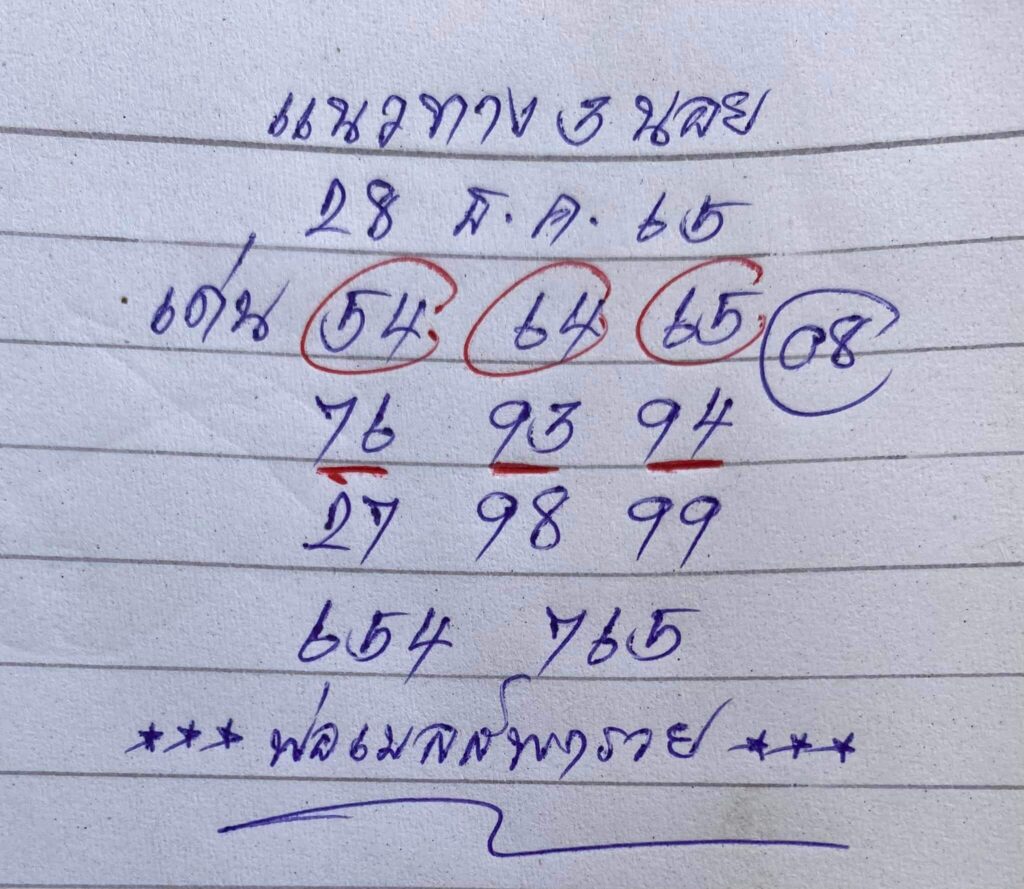 แนวทาง ฮ นอย
28 ธ.ค. 65
เด่น 54 64 65 08
76 93 94
27 98 99
654 765
*** พ่อเมลล์พารวย ***